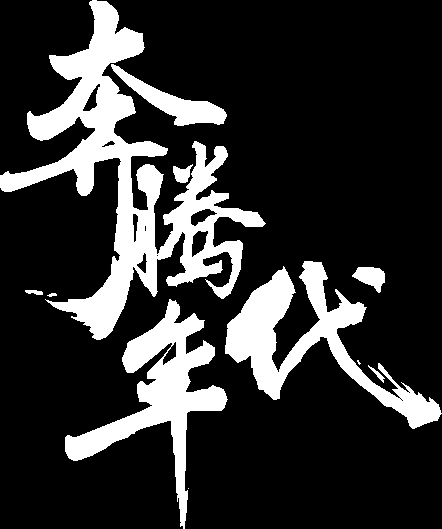 奔腾年代